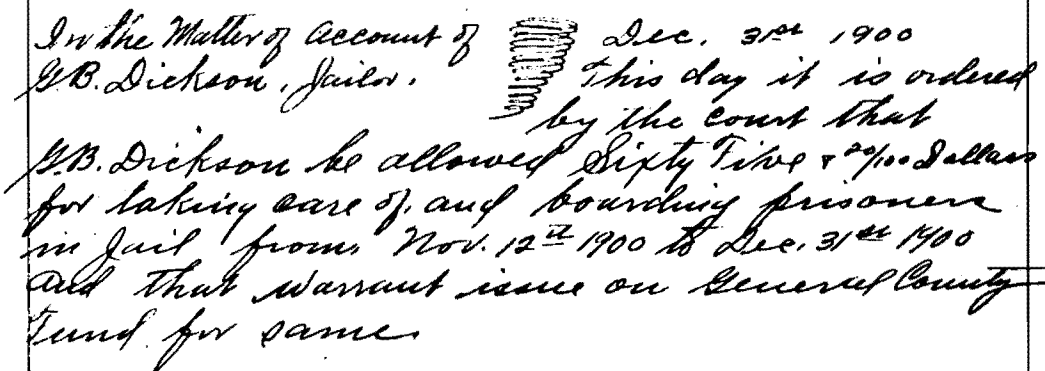 In the Matter of Account of Dec. 31st 1900
G.B. Dickson, Jailor. This day it is ordered
by the court that
G.B. Dickson be allowed Sixty Five & 20/100 Dollars
for taking care of, and boarding prisoners
in Jail from Nov. 12th 1900 to Dec. 31st 1900
and that warrant issue on General County
Fund for same.